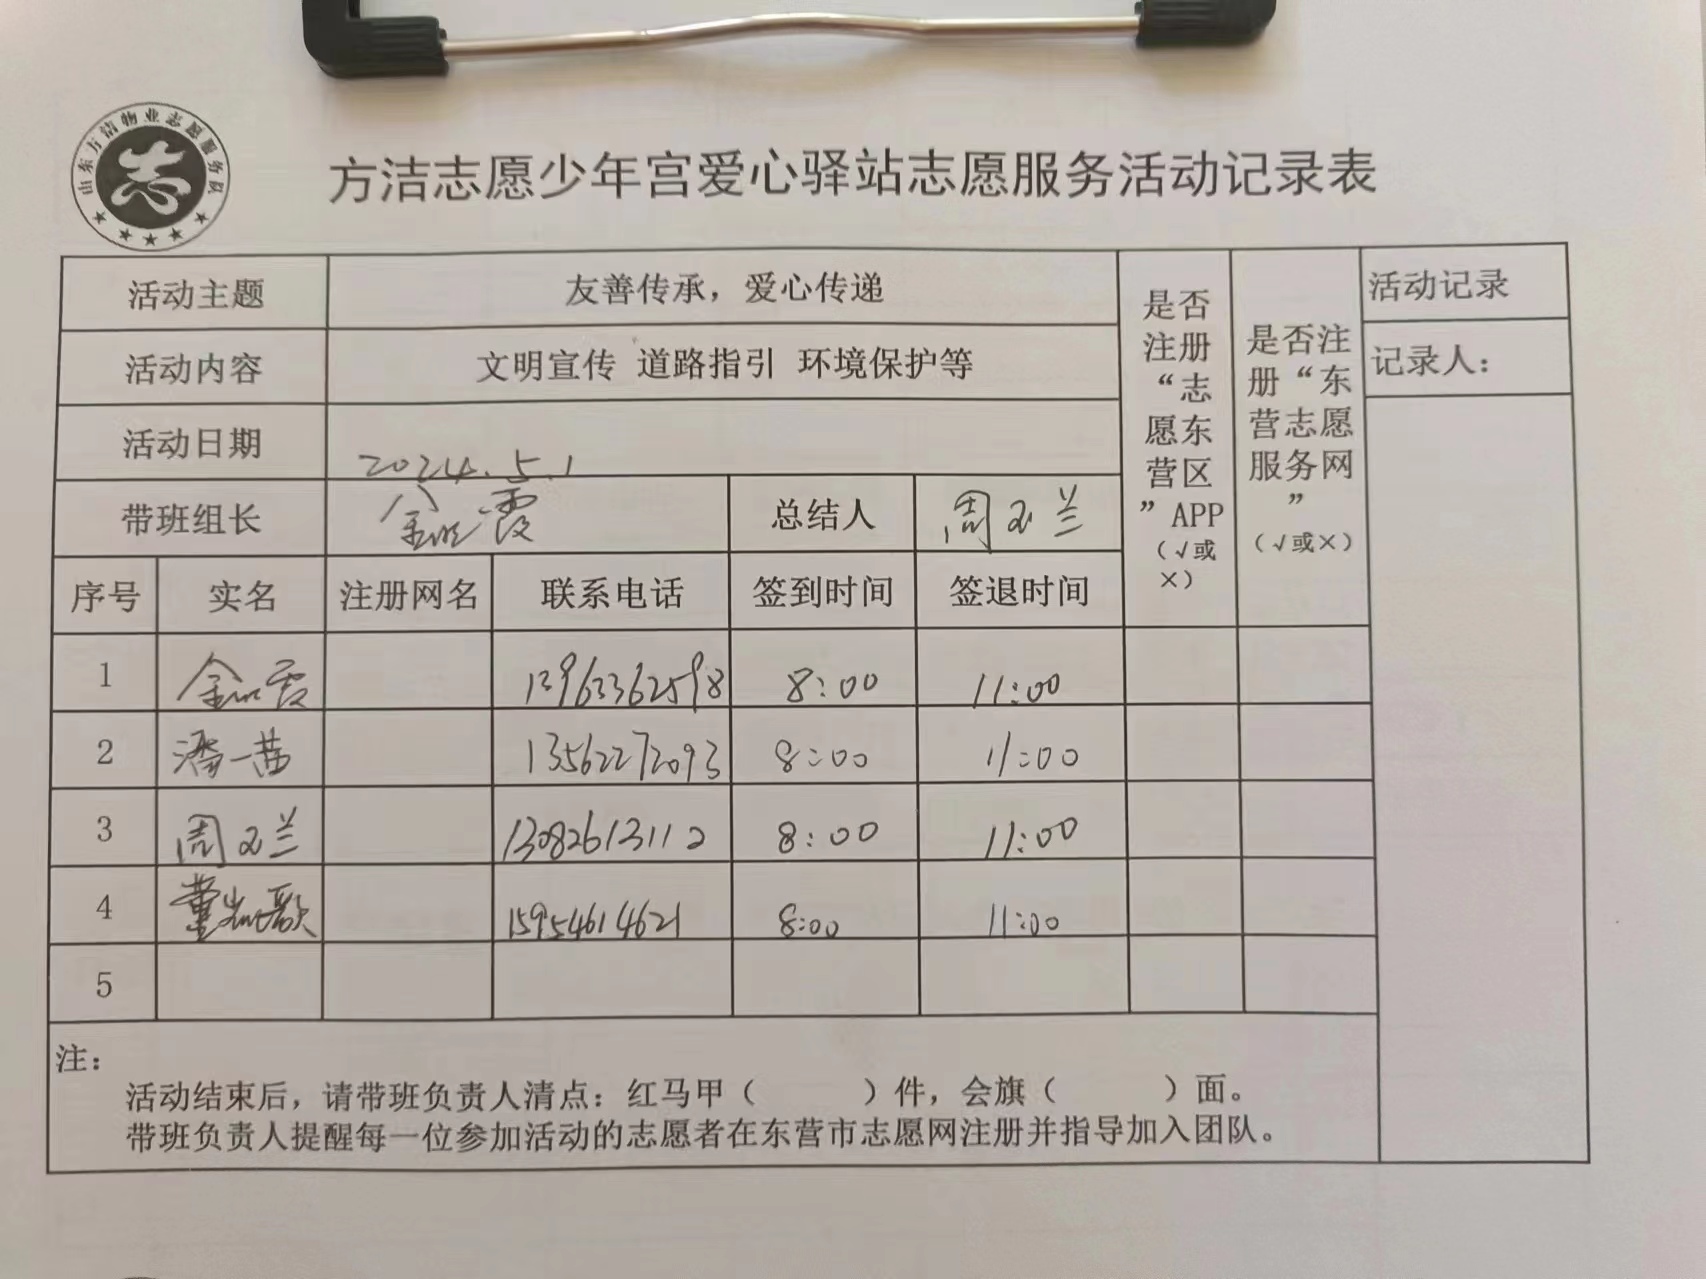 山东方洁物业志愿服务队
志
方洁志愿少年宫爱心驿站志愿服务活动记录表
活动主题 友善传承，爱心传递
活动内容 文明宣传 道路指引 环境保护等
活动日期 2024.5.1
带班组长 霞 总结人 周玉兰
是否注册“志愿东营区”APP（√或×）
是否注册“东营志愿服务网”（√或×）
活动记录
记录人：
序号 实名 注册网名 联系电话 签到时间 签退时间
1 霞 13963362598 8:00 11:00
2 潘一茜 13562272093 8:00 11:00
3 周玉兰 13082613112 8:00 11:00
4 董 歌 15954614621 8:00 11:00
5
注：
活动结束后，请带班负责人清点：红马甲（ ）件，会旗（ ）面。
带班负责人提醒每一位参加活动的志愿者在东营市志愿网注册并指导加入团队。